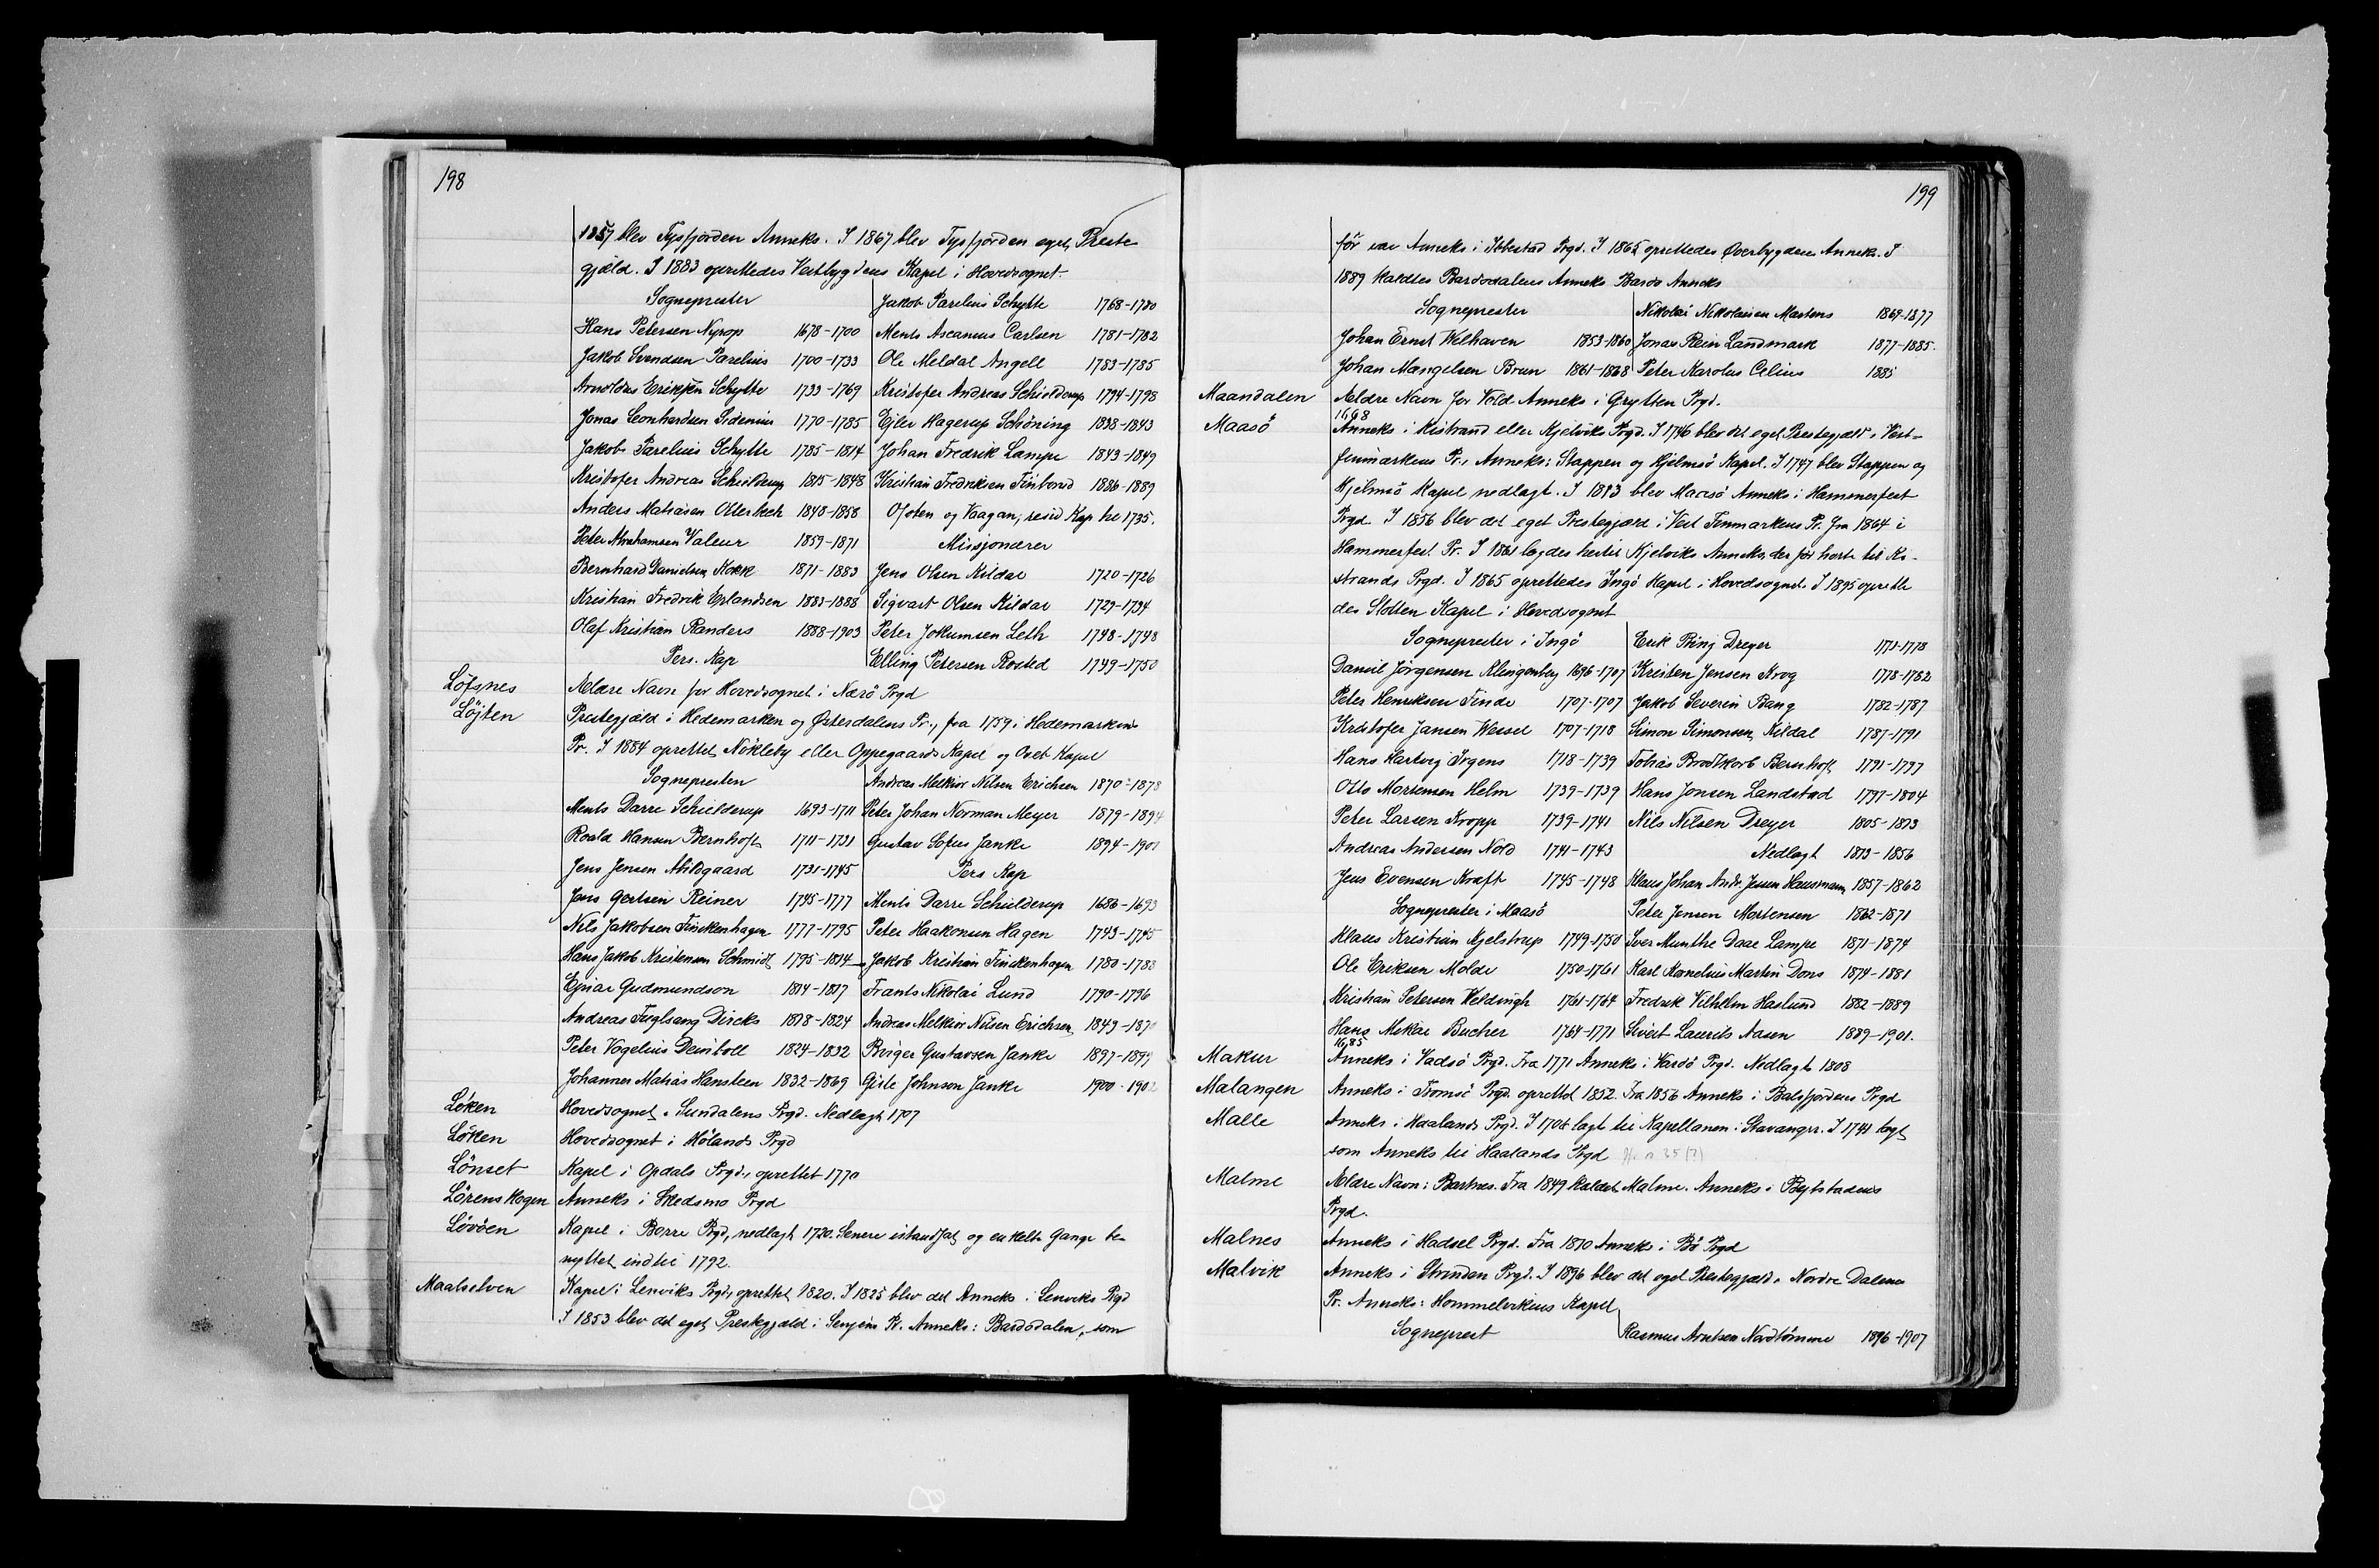 198
1857 blev Tysfjorden Anneks. I 1867 blev Tysfjorden eget Preste
gjæld. I 1883 oprettedes Vestbygdens Kapel i Hovedsognet.
Sogneprester
Hans Petersen Nyrop 1678-1700
Jakob Svendsen Parelius 1700-1733
Arnoldus Eriksen Schytte 1733-1769
Jonas Leonhardsen Sidenius 1770-1785
Jakob Parelius Schytte 1785-1814
Kristofer Andreas Schielderup 1815-1848
Anders Matiasen Otterbech 1848-1858
Peter Abrahamsen Valeur 1859-1871
Bernhard Danielsen Kokk 1871-1883
Kristian Fredrik Erlandsen 1883-1888
Olaf Kristian Randers 1888-1903
Pers. Kap
Jakob Parelius Schytte 1768-1780
Ments Ascanius Carlsen 1781-1782
Ole Meldal Angell 1783-1785
Kristofer Andreas Schielderup 1794-1798
Ejler Hagerup Schöning 1838-1843
Johan Fredrik Lampe 1843-1849
Kristian Fredriksen 1886-1889
Ofoten og Vaagan, resid Kap her 1735.
Missjonærer
Jens Olsen Kildal 1720-1726
Sigvart Olsen Kildal 1729-1734
Peter Jokumsen Leth 1748-1748
Elling Petersen Rosted 1749-1750
Löfsnes Ældre Navn for Hovedsognet i Nærö Prgd
Löjten Prestegjæld i Hedemarken og Østerdalens Pr., fra 1759 i Hedemarkens
Pr. I 1884 oprettet Nökleby eller Oppegaards Kapel og Oset Kapel
Sognepresten
Ments Darre Schielderup 1693-1711
Roald Hansen Bernhoft 1711-1731
Jens Jensen Abildgaard 1731-1745
Jens Gertsen Reiner 1745-1777
Nils Jakobsen Finckenhagen 1777-1795
Hans Jakob Kristensen Schmidt 1795-1814
Ejnar Gudmundson 1814-1817
Andreas Fuglsang Dircks 1818-1824
Peter Vogelius Deinboll 1824-1832
Johannes Matias Hansteen 1832-1869
Andreas Melkior Nilsen Erichsen 1870-1878
Peter Johan Norman Meyer 1879-1894
Gustav Sofus Janke 1894-1901
Pers Kap
Ments Darre Schielderup 1686-1693
Peter Haakonsen Hagen 1743-1745
Jakob Kristian Finckenhagen 1780-1788
Frants Nikolai Lund 1790-1796
Andreas Melkior Nilsen Erichsen 1849-1870
Birger Gustavsen Janke 1897-1899
Gisle Johnson Janke 1900-1902
Löken Hovedsognet i Sundalens Prgd. Nedlagt 1707
Löken Hovedsognet i Hölands Prgd
Lönset Kapel i Opdals Prgd., oprettet 1770
Lörenskogen Anneks i Skedsmo Prgd
Lövöen Kapel i Borre Prgd, nedlagt 1720. Senere istandsat og enkelte Gange be
nyttet indtil 1792.
Maalselven Kapel i Lenviks Prgd, oprettet 1820. I 1825 blev det Anneks i Lenviks Prgd
I 1853 blev det eget Prestegjæld i Senjens Pr. Anneks: Bardodalen, som
199
för var Anneks i Ibbestad Prgd. I 1865 oprettedes Øverbygdens Anneks. I
1889 kaldtes Bardodalens Anneks Bardo Anneks
Sogneprester
Johan Ernst Welhaven 1853-1860
Johan Mængelsen Brun 1861-1868
Nikolai Nikolaisen Martens 1869-1877
Jonas Rein Landmark 1877-1885.
Peter Karolus Celius 1885
Maandalen Ældre Navn for Vold Anneks i Grytten Prgd.
1668
Maasö Anneks i Kistrand eller Kjelviks Prgd. I 1746 blev det eget Prestegjæld i Vest-
finmarkens Pr. Anneks: Stappen og Hjelmsö Kapel. I 1747 blev Stappen og
Hjelmsö Kapel nedlagt. I 1813 blev Maasö Anneks i Hammerfest
Prgd. I 1856 blev det eget Prestegjæld i Vest Finmarkens Pr. fra 1864 i
Hammerfest Pr. I 1861 lagdes hertil Kjelviks Anneks, der för hörte til Ki-
strands Prgd. I 1865 oprettedes Ingö Kapel i Hovedsognet. I 1895 oprette
des Slotten Kapel i Hovedsognet
Sogneprester i Ingö
Daniel Jörgensen Klingenberg 1696-1707
Peter Henriksen Finde 1707-1707
Kristofer Jansen Wessel 1707-1718
Hans Hartvig Irgens 1718-1739
Otto Mortensen Helm 1739-1739
Peter Larsen Kropp 1739-1741
Andreas Andersen Nold 1741-1743
Jens Evensen Kraft 1745-1748
Sogneprester i Maasö
Klaus Kristian Kjelstrup 1749-1750
Ole Eriksen Molde 1750-1761
Kristian Petersen Weldingh 1761-1764
Hans Mikkel Bucher 1764-1771
Erik Bing Dreyer 1771-1778
Kristen Jensen Krog 1778-1782
Jakob Severin Bang 1782-1787
Simon Simonsen Kildal 1787-1791
Tobias Brodtkorb Bernhoft 1791-1797
Hans Jonsen Landstad 1797-1804
Nils Nilsen Dreyer 1805-1813
Nedlagt 1813-1856
Klaus Johan Andr. Jessen Hausmann 1857-1862
Peter Jensen Mortensen 1862-1871
Iver Munthe Daae Lampe 1871-1874
Karl Kornelius Martin Dons 1874-1881
Fredrik Vilhelm Haslund 1882-1889
Sivert Laurits Aasen 1889-1901.
1685
Makur Anneks i Vadsö Prgd. Fra 1771 Anneks i Vardö Prgd. Nedlagt 1808
Malangen Anneks i Tromsö Prgd. oprettet 1852. Fra 1856 Anneks i Balsfjordens Prgd
Malle Anneks i Haalands Prgd. I 1706 lagt til Kapellanen i Stavanger. I 1741 lagt
som Anneks til Haalands Prgd
Malme Ældre Navn: Bartnes. Fra 1849 kaldet Malme. Anneks i Bejtstadens
Prgd.
Malnes Anneks i Hadsel Prgd. Fra 1810 Anneks i Bö Prgd
Malvik Anneks i Strinden Prgd. I 1896 blev det eget Prestegjæld i Nordre Dalenes
Pr. Anneks: Hommelvikens Kapel
Sogneprest
Rasmus Arntsen Nordtömme 1896-1907